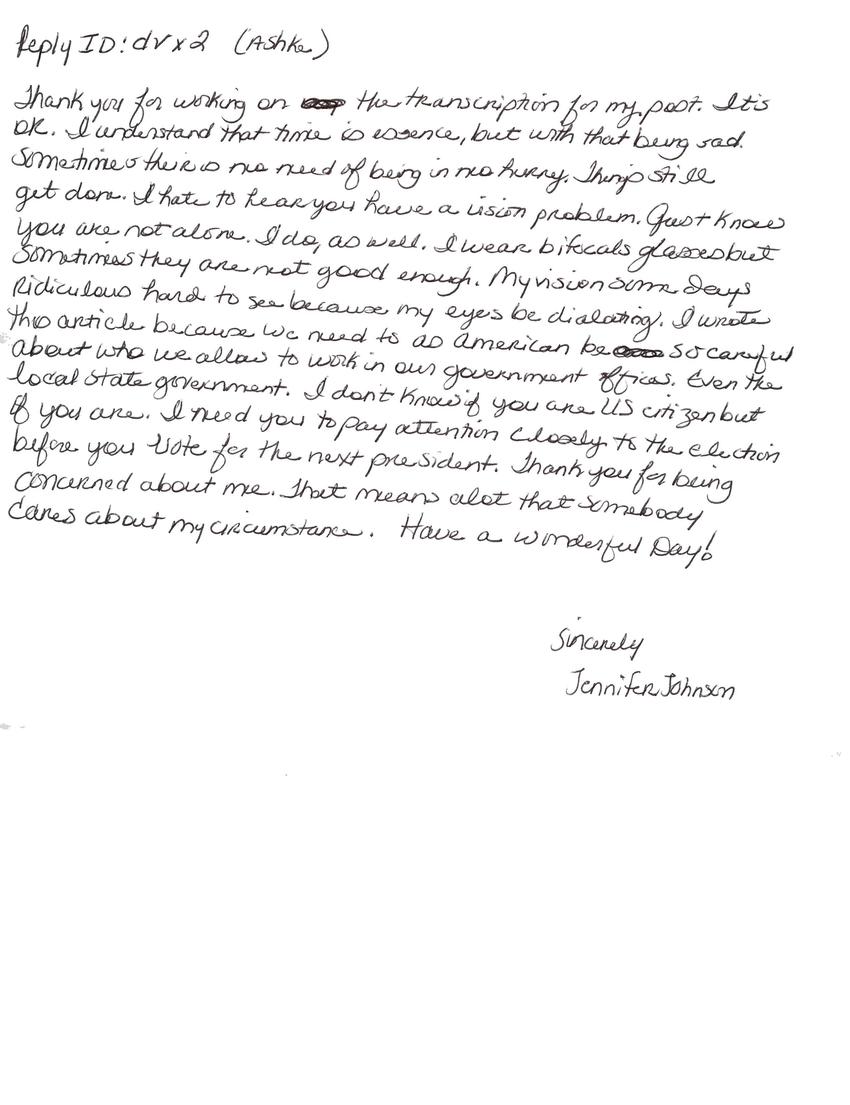 Reply ID: dvx2 (Ashke)
Thank you for working on the transcription for my post. It's
OK. I understand that time is essence, but with that being sad.
Sometimes their is no need of being in no hurry. Things still
get done. I hate to hear you have a vision problem. Just know
you are not alone. I do, as well. I wear bifocals glasses but
Sometimes they are not good enough. My vision some days
Ridiculous hard to see because my eyes be dialating. I wrote
this article because we need to as American be so careful
about who we allow to work in our government offices. Even the
local state government. I don't know if you are US citizen but
if you are. I need you to pay attention closely to the election
before you vote for the next president. Thank you for being
concerned about me. That means alot that somebody
Cares about my circumstance. Have a wonderful Day!
Sincerely
Jennifer Johnson